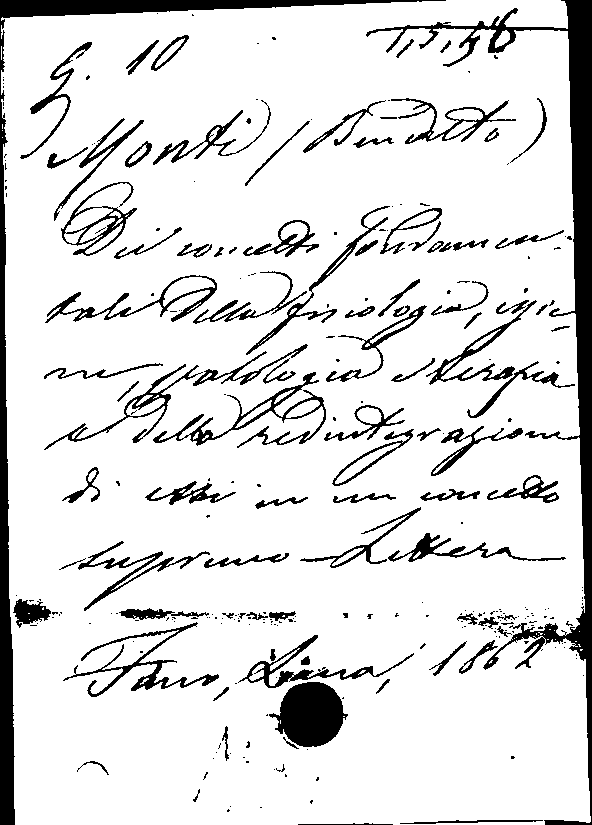 G. 10 1,5,56
Monti (Benedetto)
Dei concetti fondamen-
tali della fisiologia, igie-
ne, patologia e terapia
e della redintegrazione
di essi in un concetto
supremo - Lettera
Fano, Lana, 1862